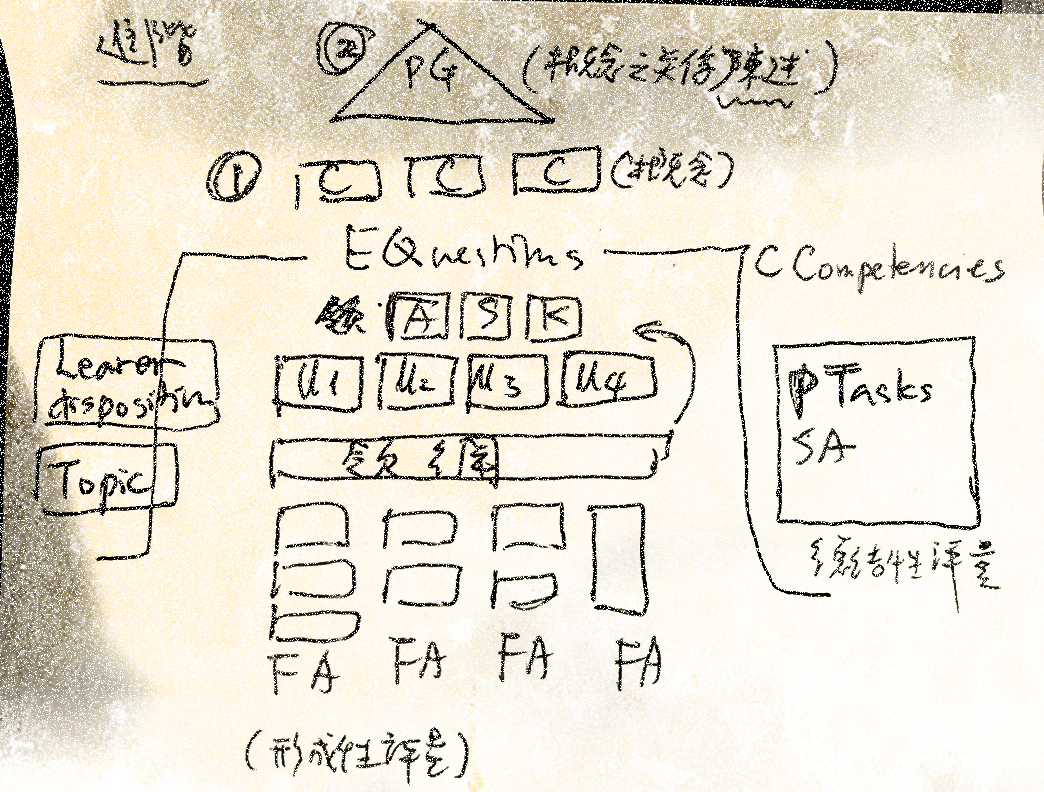 進階
② PG (概念之关係陳述)
① C C C (概念)
EQuestions
C Competencies
A S K
Learner disposition
U1 U2 U3 U4
PTasks
SA
Topic
總結性評量
FA FA FA FA
(形成性評量)